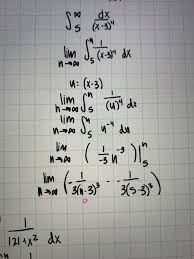 ∫₅^∞ dx/(x-3)⁴
lim n→∞ ∫₅ⁿ 1/(x-3)⁴ dx
u: (x-3)
lim n→∞ ∫₅ⁿ 1/(u)⁴ dx
lim n→∞ ∫₅ⁿ u⁻⁴ dx
lim n→∞ (1/-3 u⁻³) |₅ⁿ
lim n→∞ (- 1/3(n-3)³ - - 1/3(5-3)³)
0
1/121+x² dx